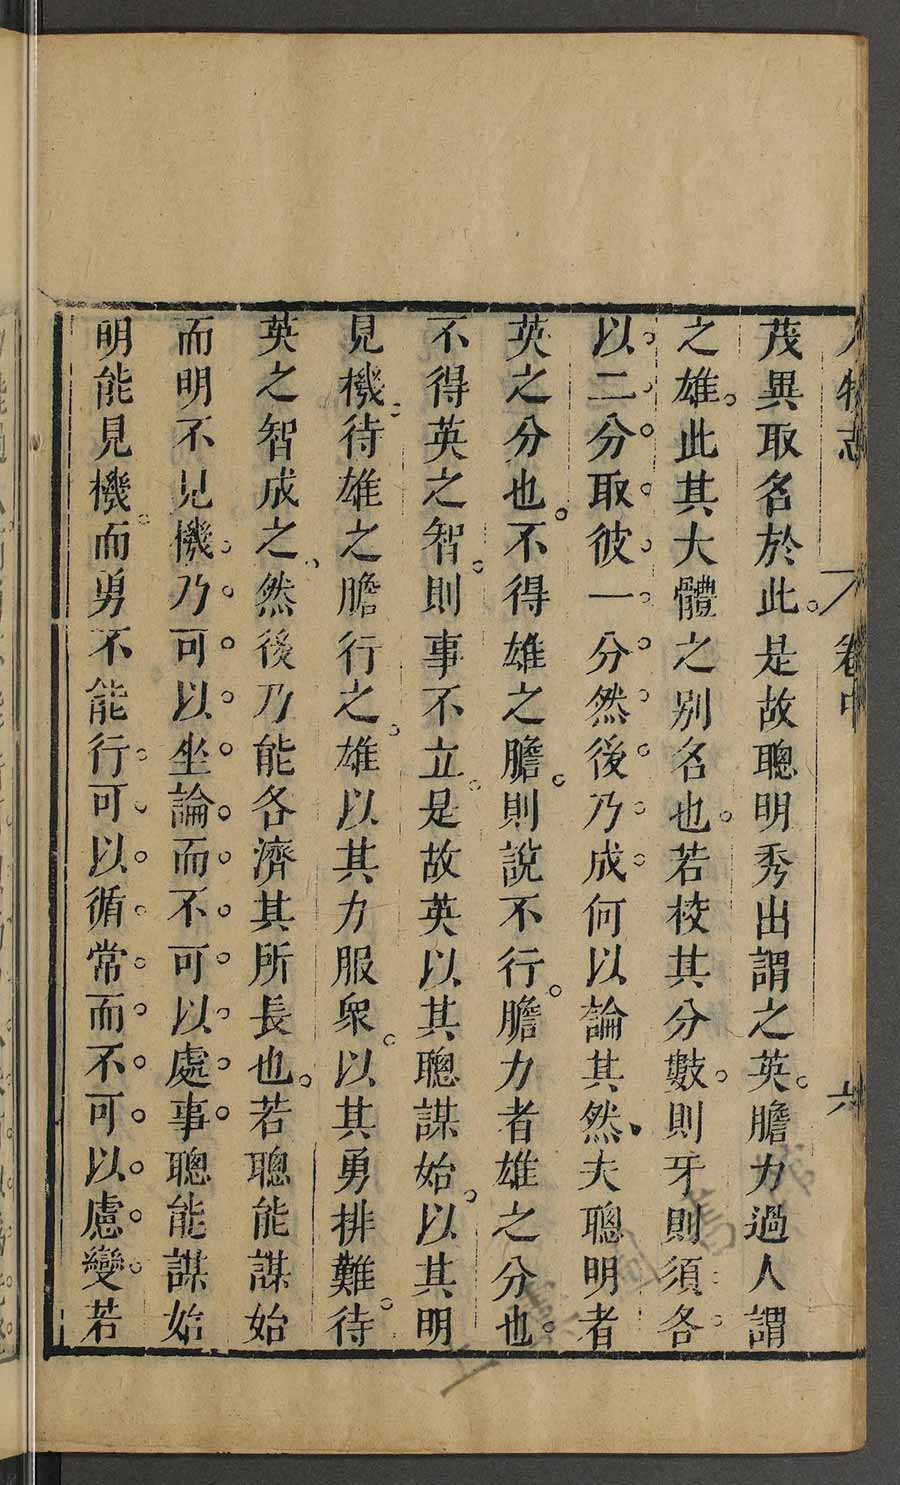 人物志 卷中 六
茂異取名於此。是故聰明秀出謂之英。膽力過人謂
之雄。此其大體之別名也。若校其分數。則牙則須各
以二分取彼一分然後乃成何以論其然、夫聰明者
英之分也。不得雄之膽。則說不行。膽力者雄之分也。
不得英之智。則事不立。是故英以其聰謀始。以其明
見機。待雄之膽行之。雄以其力服衆。以其勇排難。待
英之智成之、然後乃能各濟其所長也。若聰能謀始
而明不見機乃可以坐論而不可以處事聰能謀始
明能見機。而勇不能行可以循常而不可以慮變若